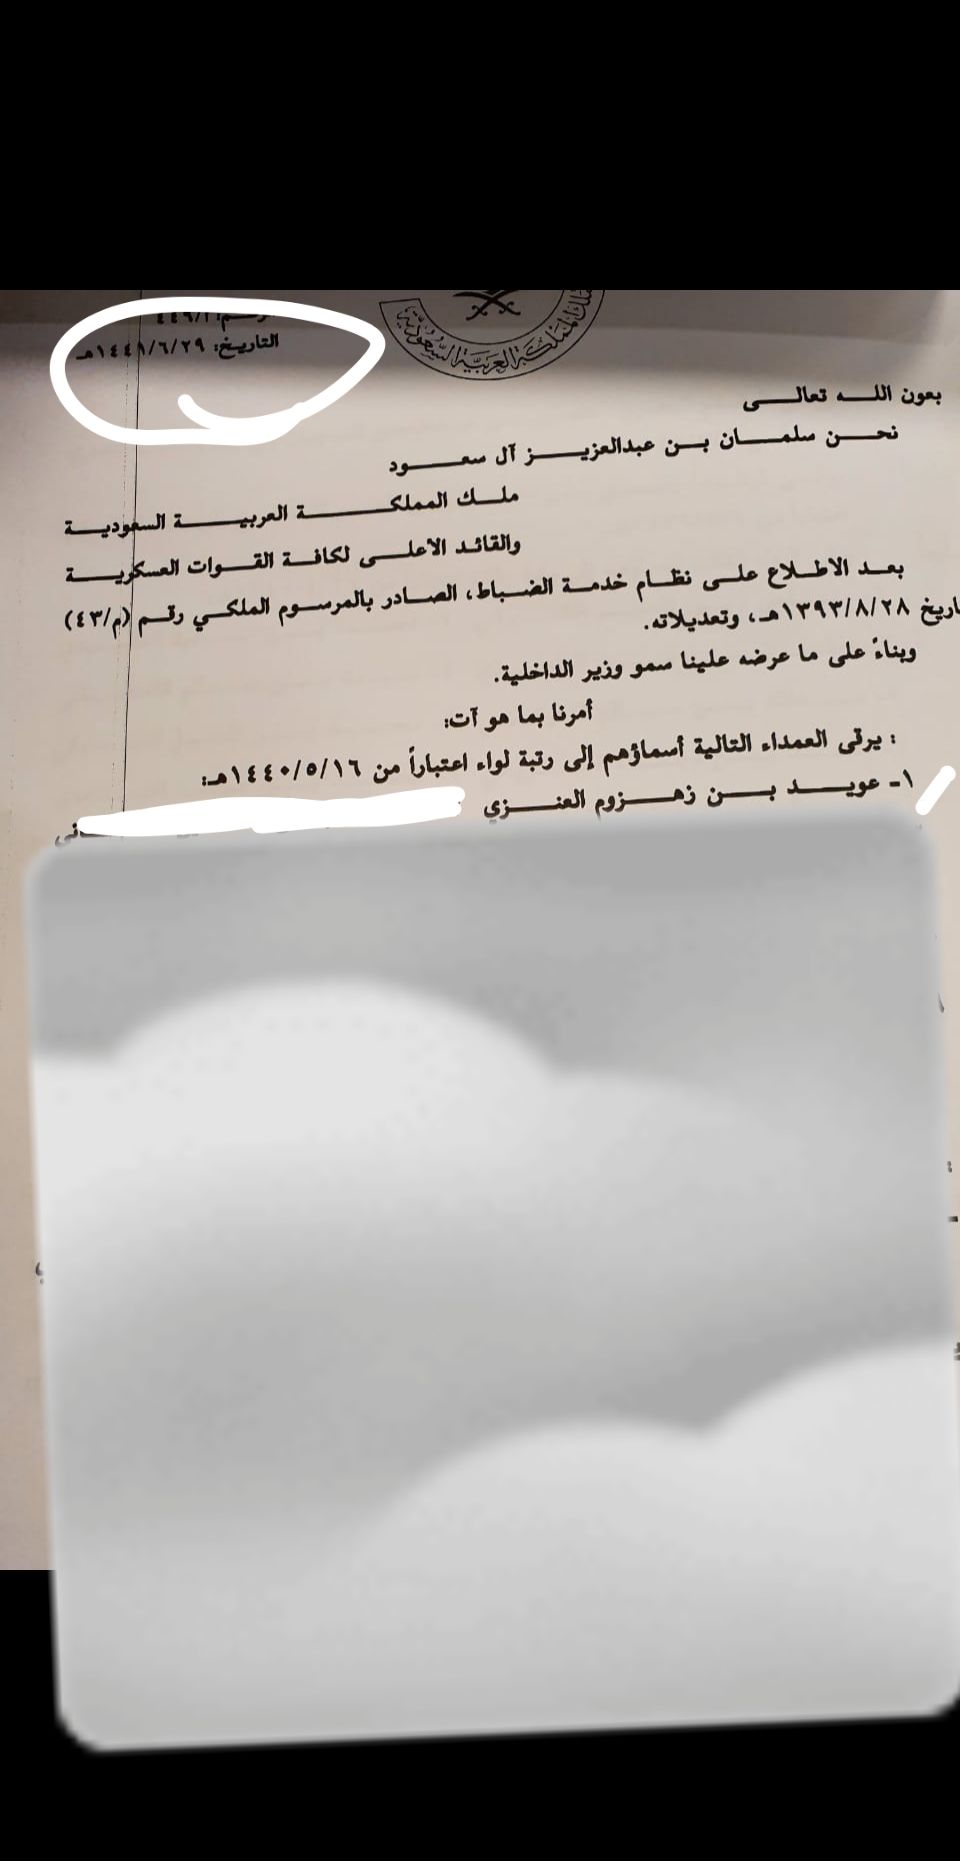 التاريخ: ١٤٤١/٦/٢٩هـ
المملكة العربية السعودية
بعون الله تعالى
نحن سلمان بن عبدالعزيز آل سعود
ملك المملكة العربية السعودية
والقائد الأعلى لكافة القوات العسكرية
بعد الاطلاع على نظام خدمة الضباط، الصادر بالمرسوم الملكي رقم (م/٤٣)
١٣٩٣/٨/٢٨هـ، وتعديلاته.
وبناءً على ما عرضه علينا سمو وزير الداخلية.
أمرنا بما هو آت:
: يرقى العمداء التالية أسماؤهم إلى رتبة لواء اعتباراً من ١٤٤٠/٥/١٦هـ:
١- عويد بن زهزوم العنزي